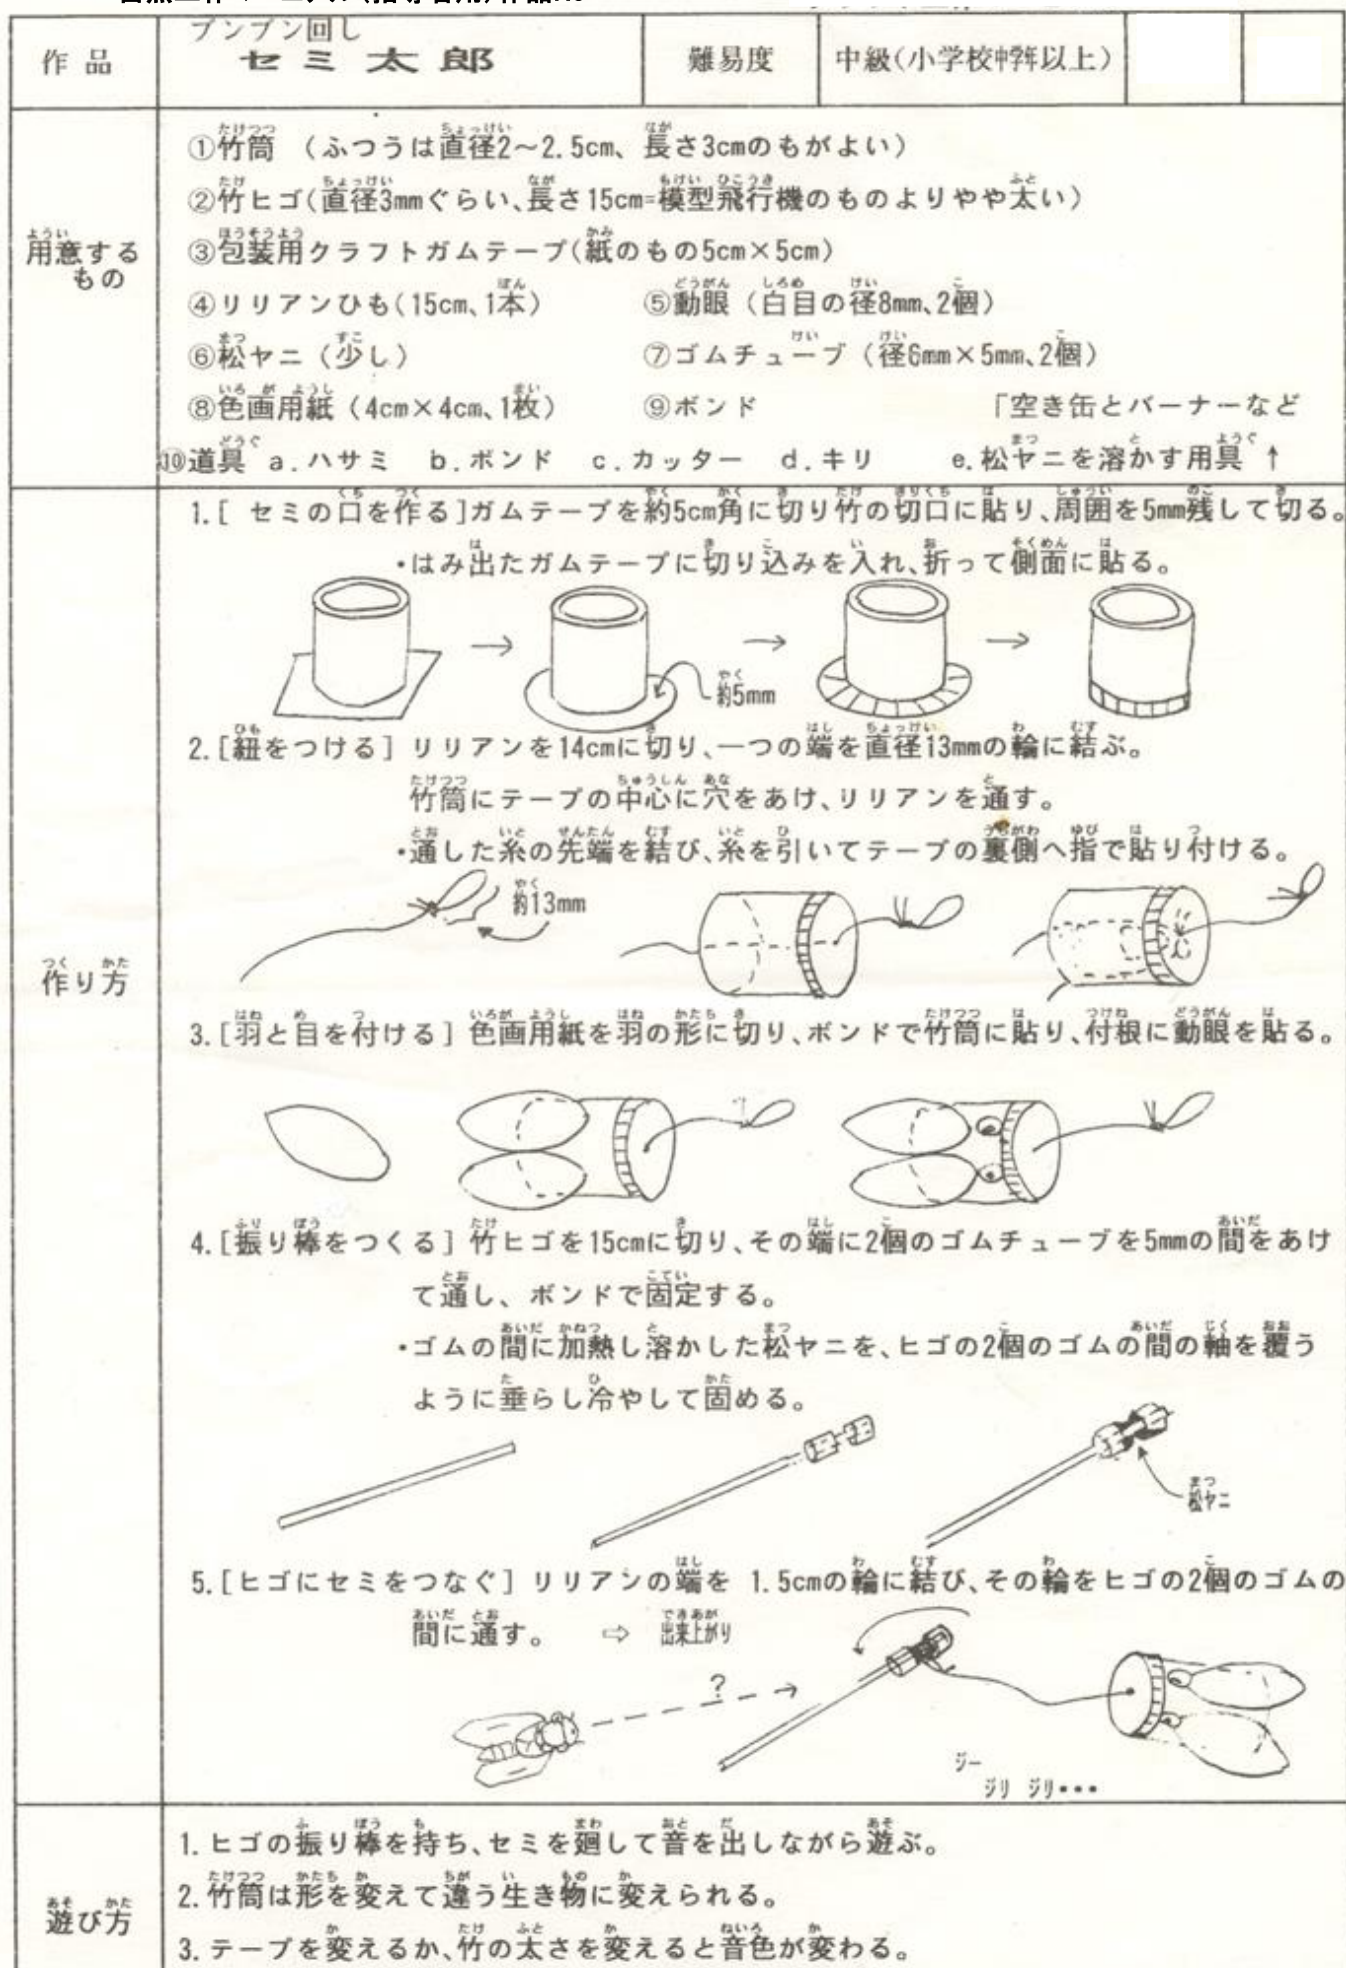 作品
ブンブン回し
セミ太郎
難易度
中級(小学校中学年以上)
用意する
もの
①竹筒 (ふつうは直径2～2.5cm、長さ3cmのもがよい)
②竹ヒゴ(直径3mmぐらい、長さ15cm=模型飛行機のものよりやや太い)
③包装用クラフトガムテープ(紙のもの5cm×5cm)
④リリアンひも(15cm、1本) ⑤動眼 (白目の径8mm、2個)
⑥松ヤニ (少し) ⑦ゴムチューブ (径6mm×5mm、2個)
⑧色画用紙 (4cm×4cm、1枚) ⑨ボンド 「空き缶とバーナーなど
⑩道具 a.ハサミ b.ボンド c.カッター d.キリ e.松ヤニを溶かす用具 ↑
作り方
1.[ セミの口を作る]ガムテープを約5cm角に切り竹の切口に貼り、周囲を5mm残して切る。
・はみ出たガムテープに切り込みを入れ、折って側面に貼る。
約5mm
2.[紐をつける] リリアンを14cmに切り、一つの端を直径13mmの輪に結ぶ。
竹筒にテープの中心に穴をあけ、リリアンを通す。
・通した糸の先端を結び、糸を引いてテープの裏側へ指で貼り付ける。
約13mm
3.[羽と目を付ける] 色画用紙を羽の形に切り、ボンドで竹筒に貼り、付根に動眼を貼る。
4.[振り棒をつくる] 竹ヒゴを15cmに切り、その端に2個のゴムチューブを5mmの間をあけ
て通し、ボンドで固定する。
・ゴムの間に加熱し溶かした松ヤニを、ヒゴの2個のゴムの間の軸を覆う
ように垂らし冷やして固める。
松ヤニ
5.[ヒゴにセミをつなぐ] リリアンの端を 1.5cmの輪に結び、その輪をヒゴの2個のゴムの
間に通す。 ⇨ 出来上がり
?
ジー
ジリ ジリ・・・
遊び方
1.ヒゴの振り棒を持ち、セミを廻して音を出しながら遊ぶ。
2.竹筒は形を変えて違う生き物に変えられる。
3.テープを変えるか、竹の太さを変えると音色が変わる。